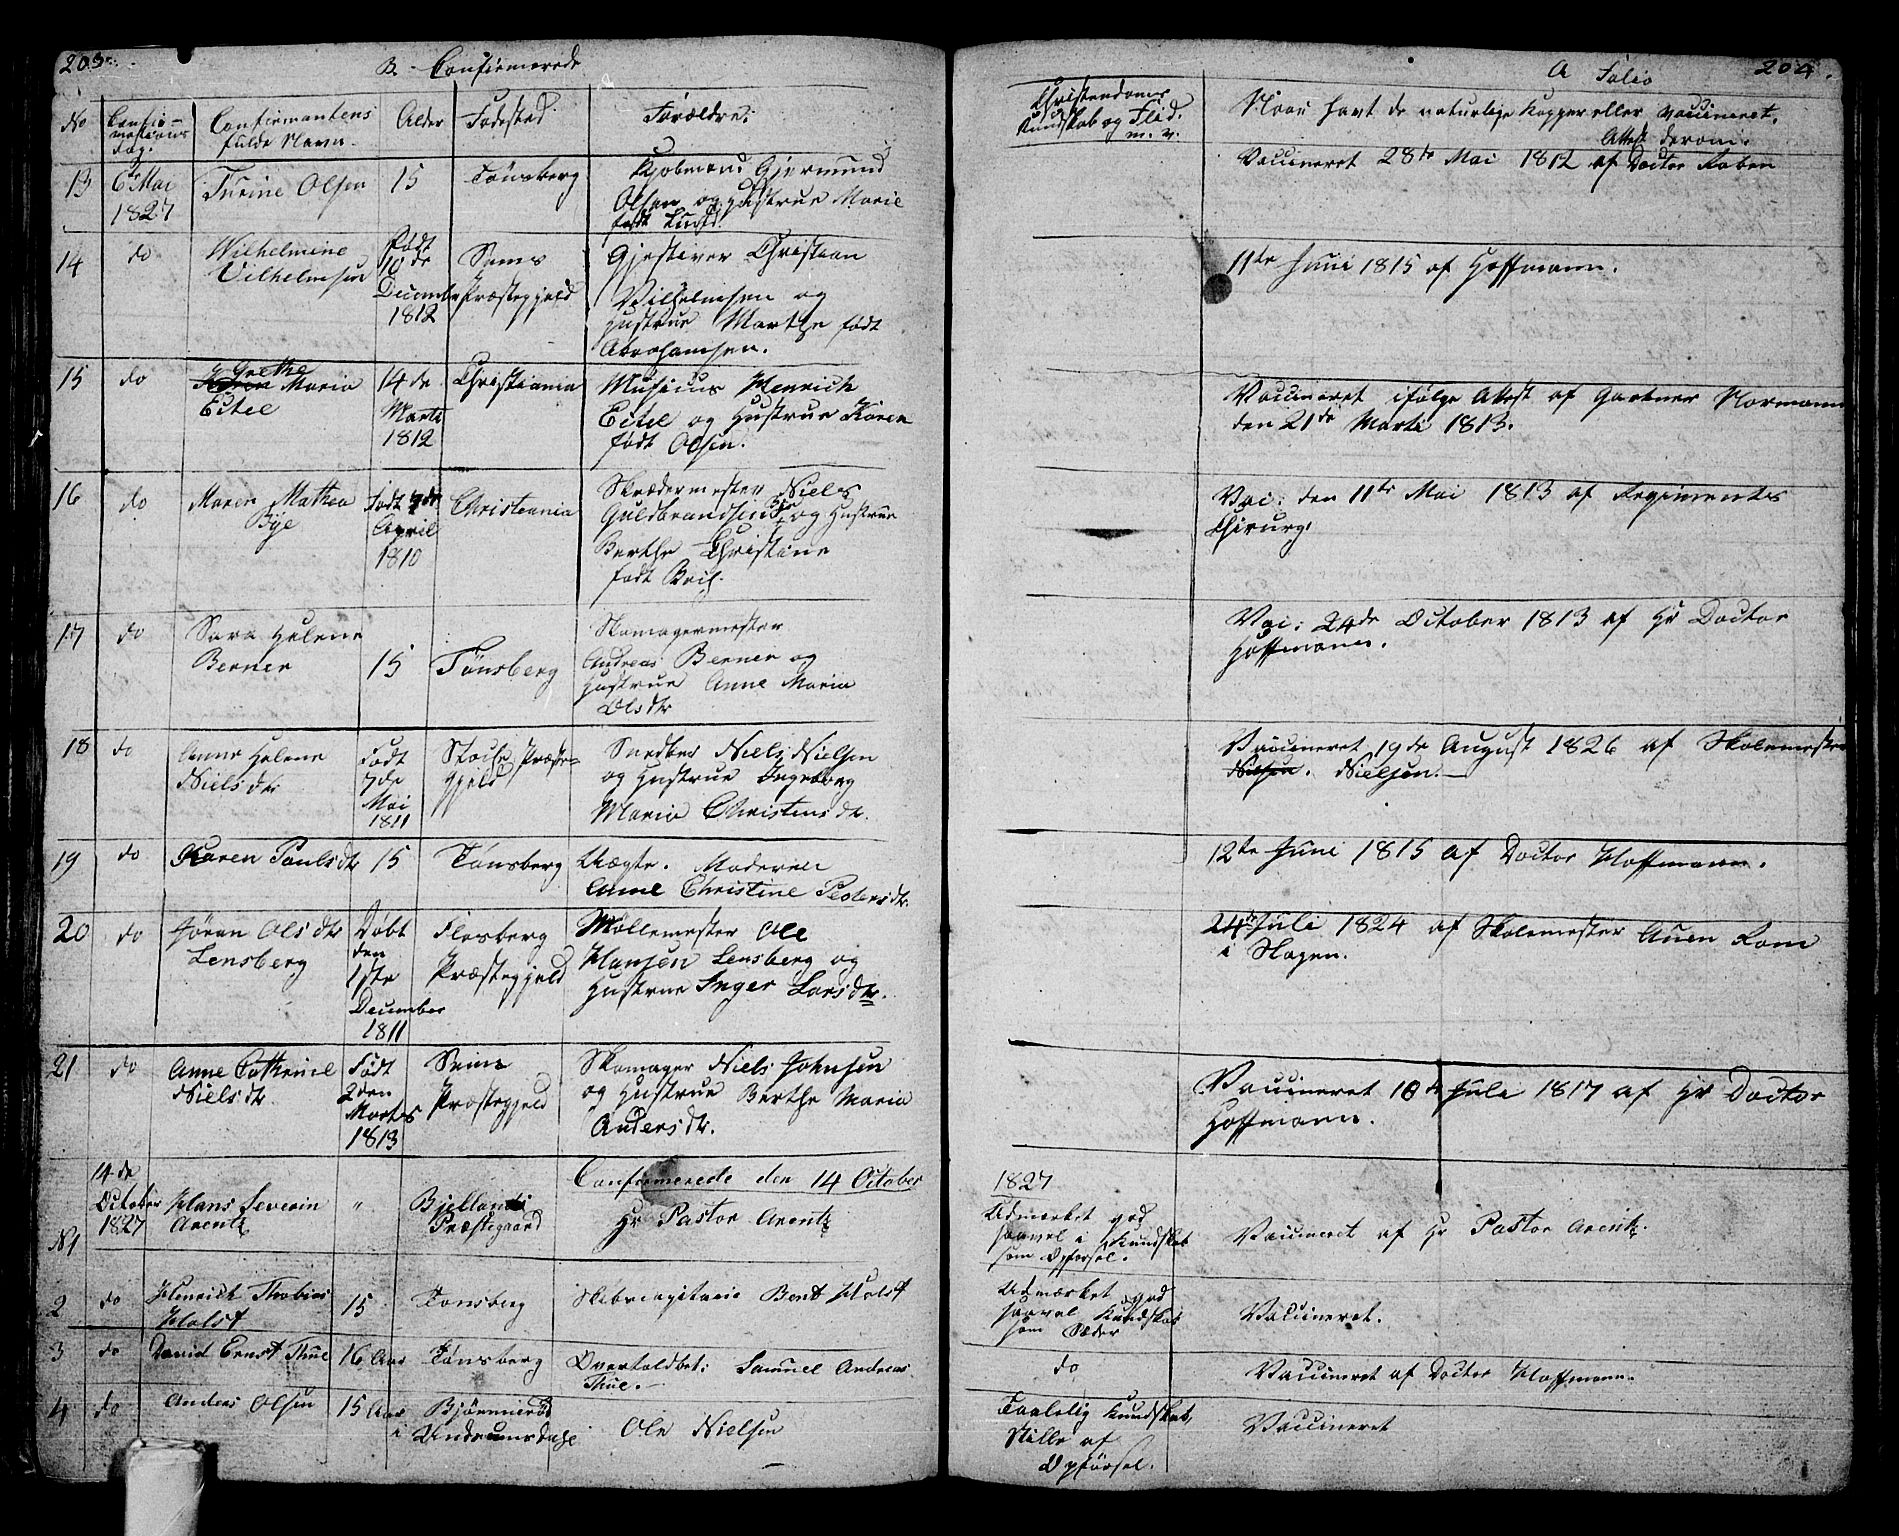 203.
B. Confirmerede
No
Confir-
mations
dag.
Confirmantens
fulde Navn.
Alder
Fødested
Forældre.
13
6 Mai
1827
Turine Olsen
15
Tønsberg
Kjøbmand Gjermund
Olsen og Hustrue Marie
født Lund.
14
do
Wilhelmine
Vilhelmsen
Født
10de
December
1812
Sems
Præstegjeld
Gjestiver Christian
Vilhelmsen og
Hustrue Marthe født
Abrahamsen.
15
do
Grethe
Maria
Eitel
14de
Marti
1812
Christiania
Musicus Henrich
Eitel og Hustrue Karen
født Olsen.
16
do
Maren Mathea
Bye
Født 7de
April
1810
Christiania
Skrædermester Niels
Guldbrandsen Bye og Hustrue
Berthe Christine
født
17
do
Sara Helene
Berner
15
Tønsberg
Skomagermester
Andreas Berner og
Hustrue Anne Maria
Olsdtr
18
do
Anne Helene
Nielsdtr
Født
7de
Mai
1811
Stocke Præste-
gjeld
Snedker Niels Nielsen
og Hustrue Ingeborg
Maria Christensdtr.
19
do
Karen Paulsdtr
15
Tønsberg
Uægte. Moderen
Anne Christine Pedersdtr.
20
do
Jøran Olsdtr
Lensberg
Døbt
den
1ste
December
1811
Flesberg
Præstegjeld
Møllemester Ole
Hansen Lensberg og
Hustrue Inger Larsdtr.
21
do
Anne Cathrine
Nielsdtr.
Født
2den
Martes
1813
Sems
Præstegjeld
Skomager Niels Johnsen
og Hustrue Berthe Maria
Andersdtr.
Confirmerede den 14 October
N1
14de
October
1827
Hans Severin
Arentz
"
Bjellands
Præstegaard
Hr Pastor Arentz
2
do
Henrich Thobias
Holst
15
Tønsberg
Skibscapitain Bent Holst
3
do
David Ernst Thue
16 Aar
Tønsberg
Overtoldbet: Samuel Andreas
Thue.
4
do
Anders Olsen
15 Aar
Bjønnerød
i Undrumsdahl
Ole Nielsen
A Folio
204.
Christendoms
Kundskab og Flid.
m. v.
Naar havt de naturlige Kopper eller vaccineret,
Attest derom.
Vaccineret 28de Mai 1812 af Doctor Raben
11te Juni 1815 af Hoffmann.
Vaccineret ifølge Attest af Gartner Normann
den 21de Marti 1813.
Vac: den 11te Mai 1813 af Regiments
Chirurg.
Vac: 24de October 1813 af Hr Doctor
Hoffmann.
Vaccineret 19de August 1826 af Skolemester
Nilsen. Nielsen.
12te Juni 1815 af Doctor Hoffmann.
24de Juli 1824 af Skolemester Auen Rom
i Slagen.
Vaccineret 10de Juli 1817 af Hr Doctor
Hoffmann.
1827
Udmærket god
saavel i Kundskab
som Opførsel.
Vaccineret af Hr Pastor Arentz.
Udmærket god
saavel Kundskab
som Sæder
Vaccineret.
do
Vaccineret af Doctor Hoffmann.
Taalelig Kundskab,
Stille af
Opførsel.
Vaccineret